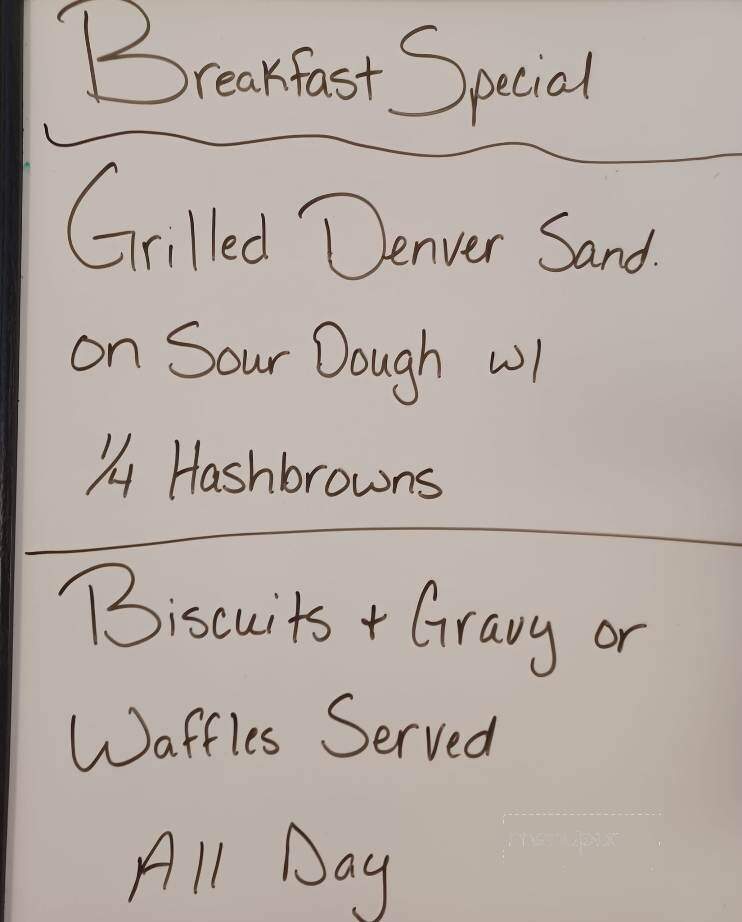 Breakfast Special
Grilled Denver Sand.
on Sour Dough w/
1/4 Hashbrowns
Biscuits + Gravy or
Waffles Served
All Day